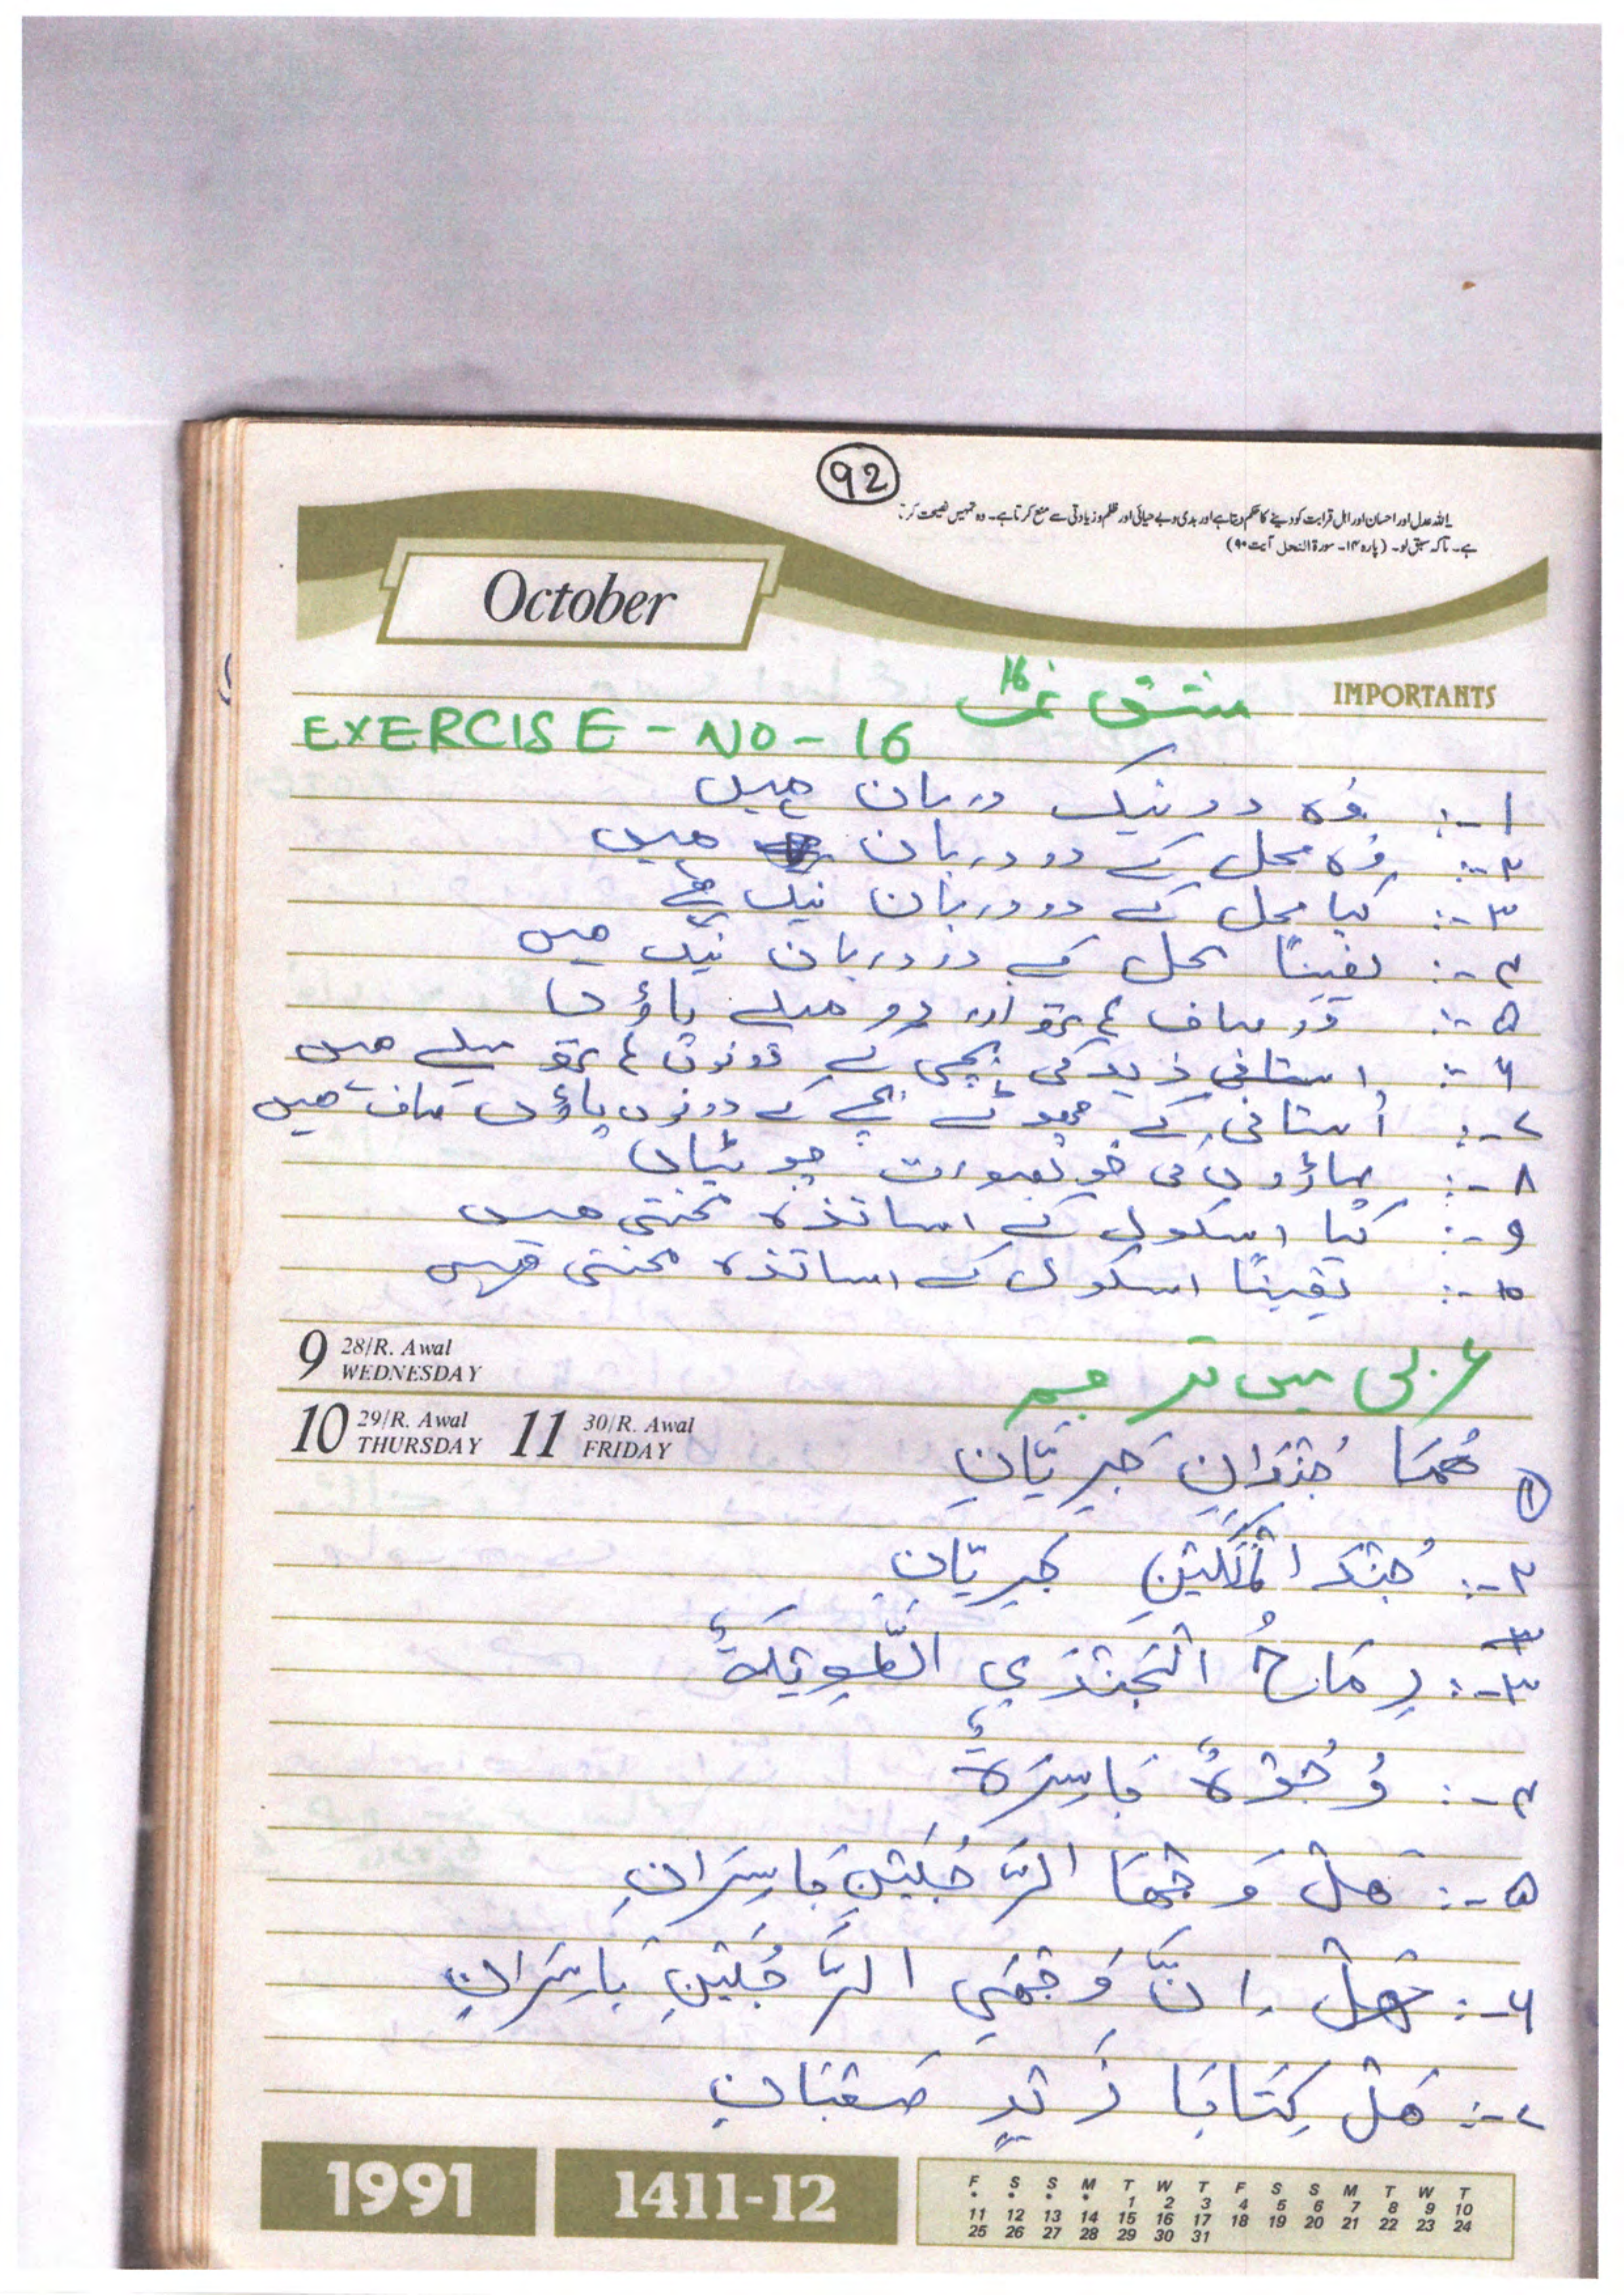 92
یا اللہ عدل اور احسان اور اہل قرابت کو دینے کا حکم دیتا ہے اور بدی و بے حیائی اور ظلم و زیادتی سے منع کرتا ہے۔ وہ تمہیں نصیحت کرتا
ہے۔ تاکہ سبق لو۔ (پارہ ۱۴۔ سورۃ النحل آیت ۹۰)
October
IMPORTANTS
مشق نمبر 16
EXERCISE - NO - 16
۱-: وُہ دو نیک دربان ہیں
۲-: وُہ محل کے دو دربان ہیں
۳-: کیا محل کے دو دربان نیک ہے
۴-: یقیناً محل کے دو دربان نیک ہیں
۵-: دو صاف ہاتھ اور دو میلے پاؤں
۶-: استانی زید کی بچی کے دونوں ہاتھ میلے ہیں
۷-: اُستانی کے چھوٹے بچے کے دونوں پاؤں صاف ہیں
۸-: پہاڑوں کی خوبصورت چوٹیاں
۹-: کیا اسکول کے اساتذہ محنتی ہیں
۱۰-: یقیناً اسکول کے اساتذہ محنتی ہیں
9 28/R. Awal WEDNESDAY
عربی میں ترجمہ
10 29/R. Awal THURSDAY 11 30/R. Awal FRIDAY
۱ هُمَا جُنْدَانِ جَرِيّانِ
۲-: جُنْدَ الْمَلِكَيْنِ جَرِيّانِ
۳-: رِمَاحُ الْجُنْدَيِ الطَّوِيْلَةُ
۴-: وُجُوْهٌ بَاسِرَةٌ
۵-: هَلْ وَجْهَا الرَّجُلَيْنِ بَاسِرَانِ
۶-: اِنَّ وَجْهَيِ الرَّجُلَيْنِ بَاسِرَانِ
۷-: هَلْ كِتَابَا زَيْدٍ صَعْبَانِ
1991
1411-12
F S S M T W T F S S M T W T
* * * * 1 2 3 4 5 6 7 8 9 10
11 12 13 14 15 16 17 18 19 20 21 22 23 24
25 26 27 28 29 30 31